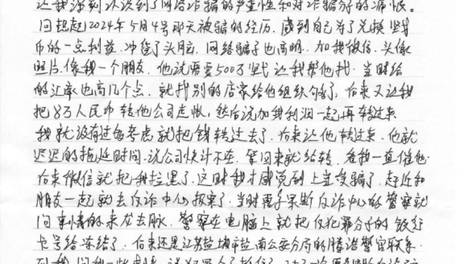 让我深刻认识到了网络诈骗的严重性和对诈骗分子的痛恨。
回想起2024年5月4号那天被骗的经历，感到自己为了兑换坚
币的一点利益，冲昏了头脑，网络骗子也高明，加我微信，头像
照片像我一个朋友，他说需要500万坚戈让我帮他找，当时给
的汇率也高几个点，就找别的店家给他组织钱了。后来又让我
把8万人民币转他公司走账，然后说加我利润一起再转过来
我就没有过多考虑就把钱转过去了，后来让他转过来，他就
迟迟的拖延时间，说公司快计不在，等回来就给转，在我一直催他
后来微信就把我拉黑了，这时我才感觉到上当受骗了，赶紧和
朋友一起就去反诈中心报案了，当时男子果断反诈中心的警察就
问事情的来龙去脉，警察在电脑上就把犯罪分子的银行
卡号给冻结了，后来还是江苏盐城
南公安分局的腾浩警官联系
到我，问我一些事情